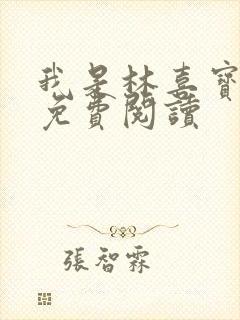 我是林喜寶
免費閱讀
張智霖